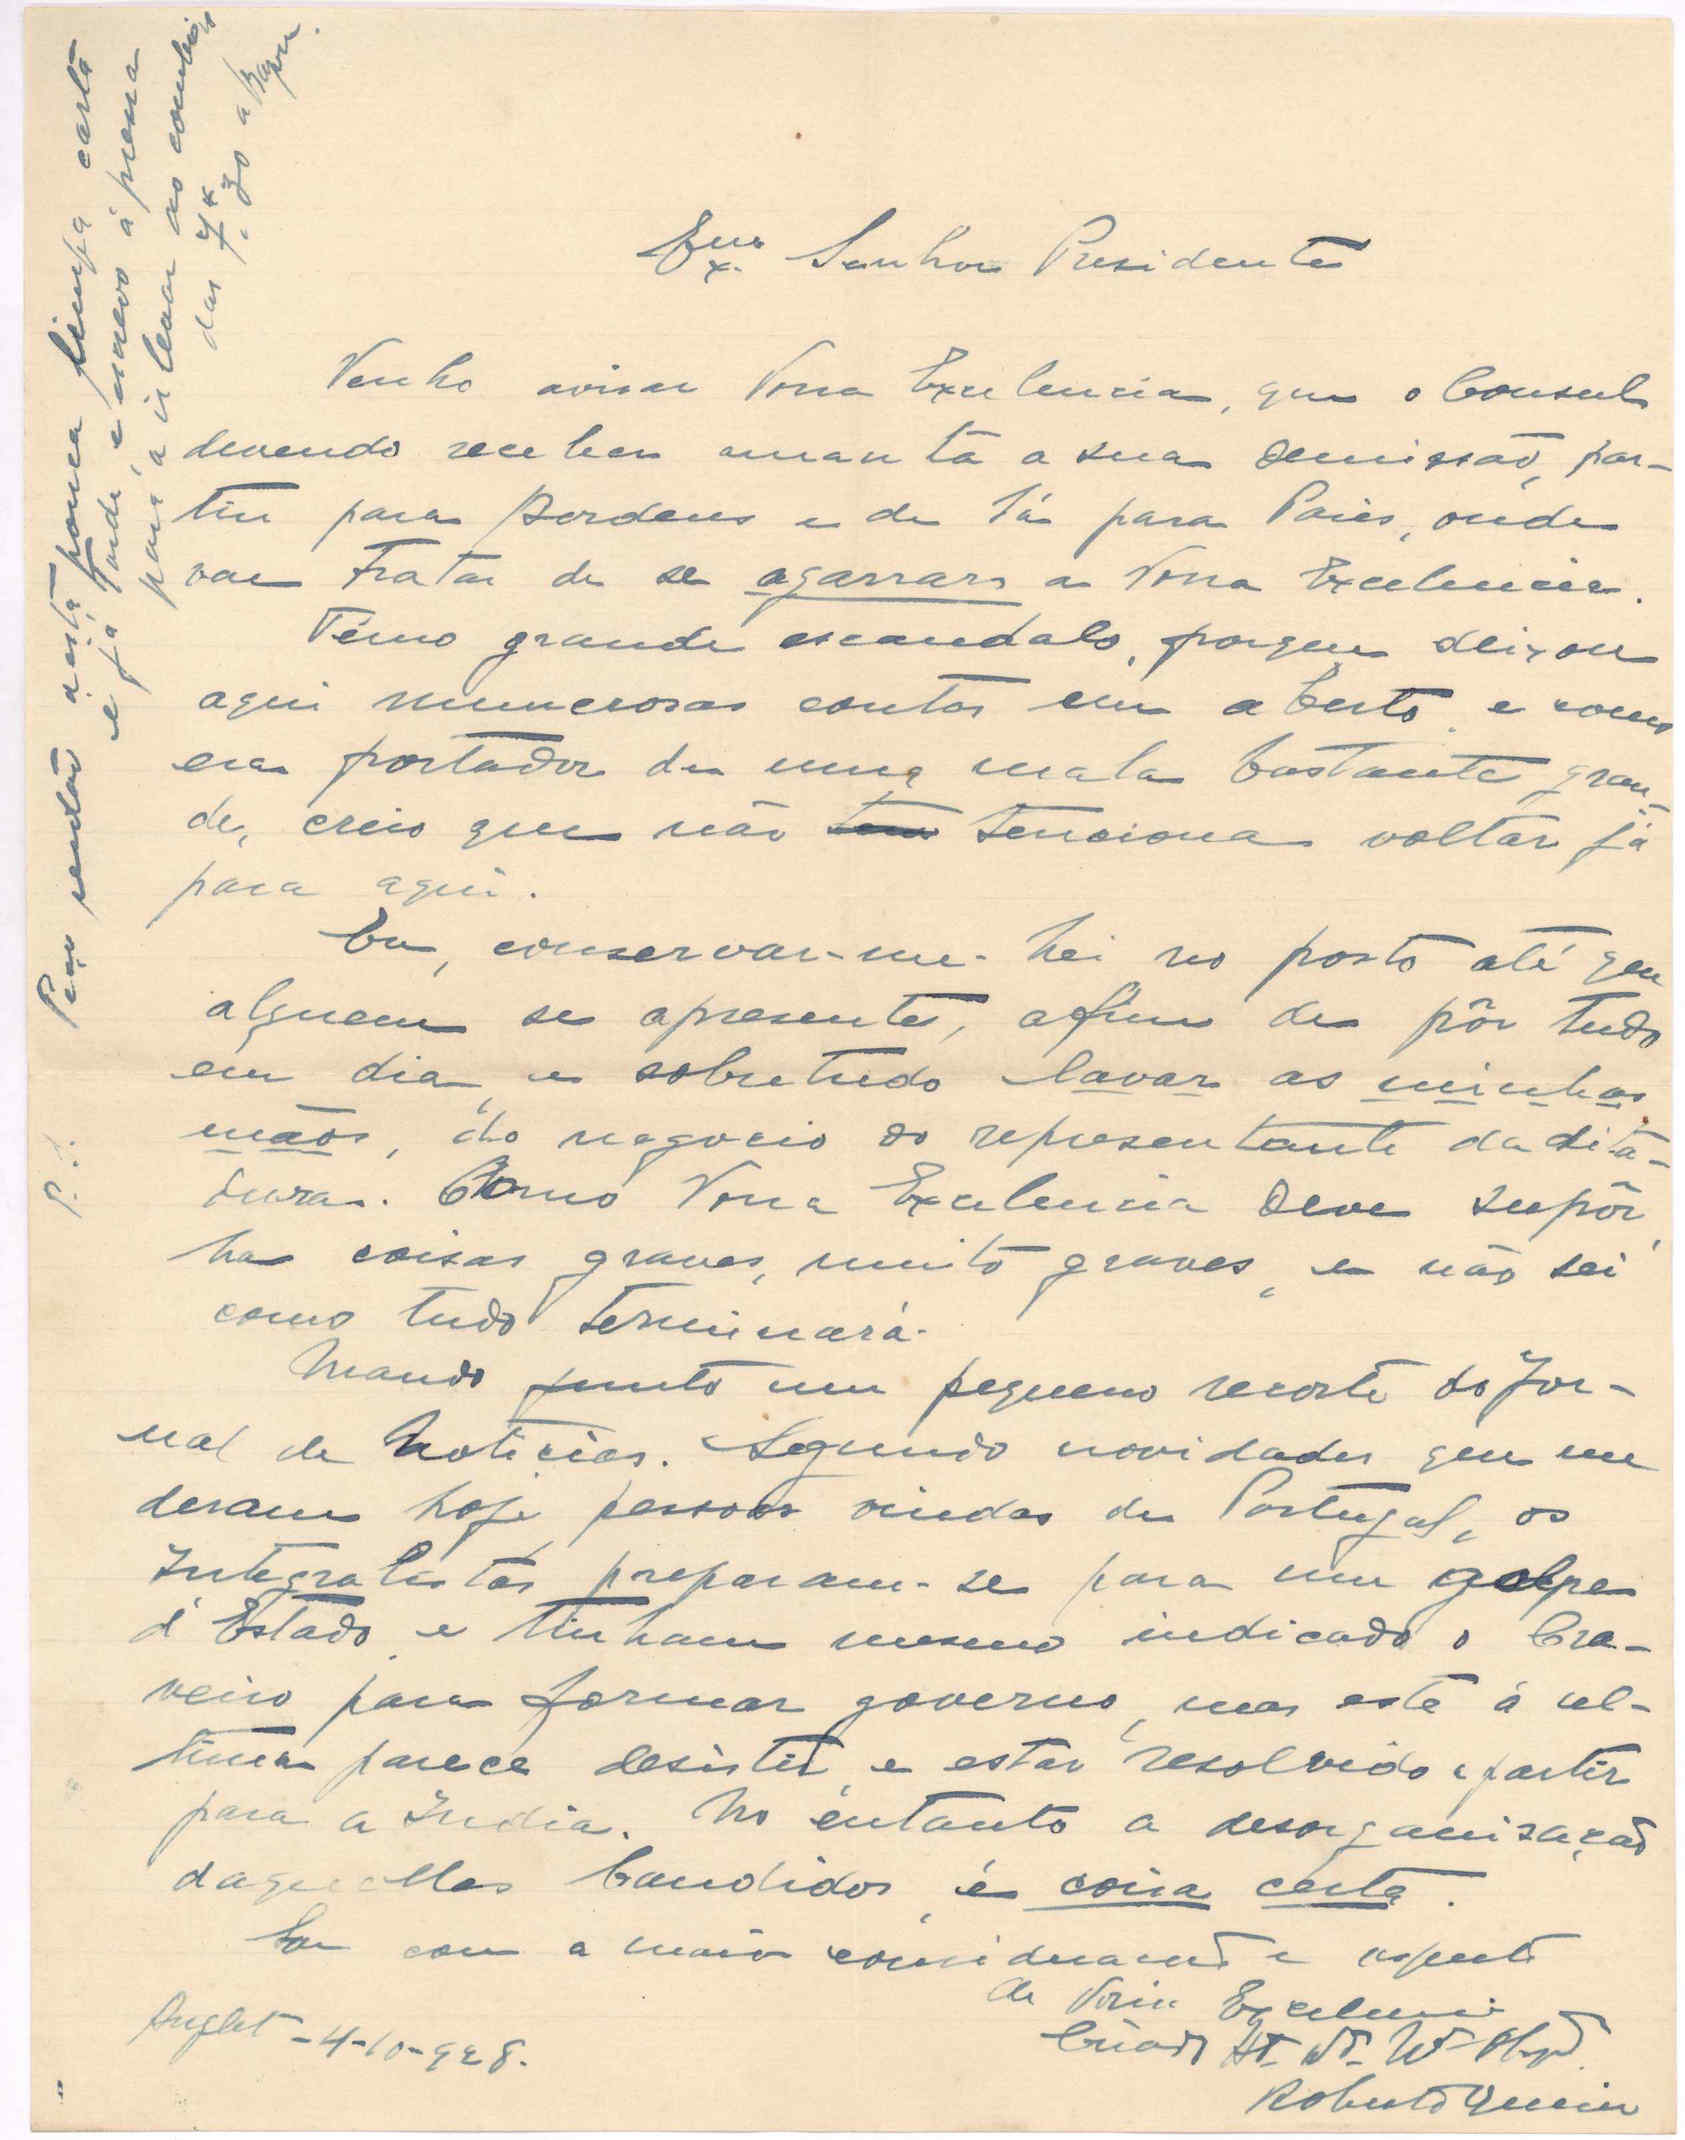 Exmo. Senhor Presidente
Venho avisar Vossa Excelencia, que o Consul
devendo receber amantã a sua demissão, par-
tiu para Bordeus e de lá para Paris, onde
vae tratar de se agarrar a Vossa Excelencia.
Temo grande escandalo, porque deixou
aqui numerosas contas em aberto, e como
era portador de uma mala bastante gran-
de, creio que não tem tenciona voltar já
para aqui.
Eu, conservar-me-hei no posto até que
alguem se apresente, afim de pôr tudo
em dia, e sobretudo lavar as minhas
mãos, do negocio do representante da dita-
dura. Como Vossa Excelencia deve supôr,
ha coisas graves, muito graves, e não sei
como tudo terminará.
Mando junto um pequeno recorte do Jor-
nal de Noticias. Segundo novidades que me
deram hoje pessoas vindas de Portugal, os
Integralistas preparam-se para um golpe
d'Estado, e tinham mesmo indicado o Cra-
veiro para formar governo, mas este á ul-
tima parece desistir, e estar resolvido a partir
para a India. No entanto a desorganisação
daquelles bandidos, é coisa certa.
Sou com a maior consideração e respeito
de Vossa Excelencia
Criado At. Vº.
Roberto
Anglet - 4-10-928.
P.S. Peço perdão a esta pouca limpa carta
e já tarde, e escrevo á pressa
para a ir levar ao comboio
das 7 . 30 a Bayon.